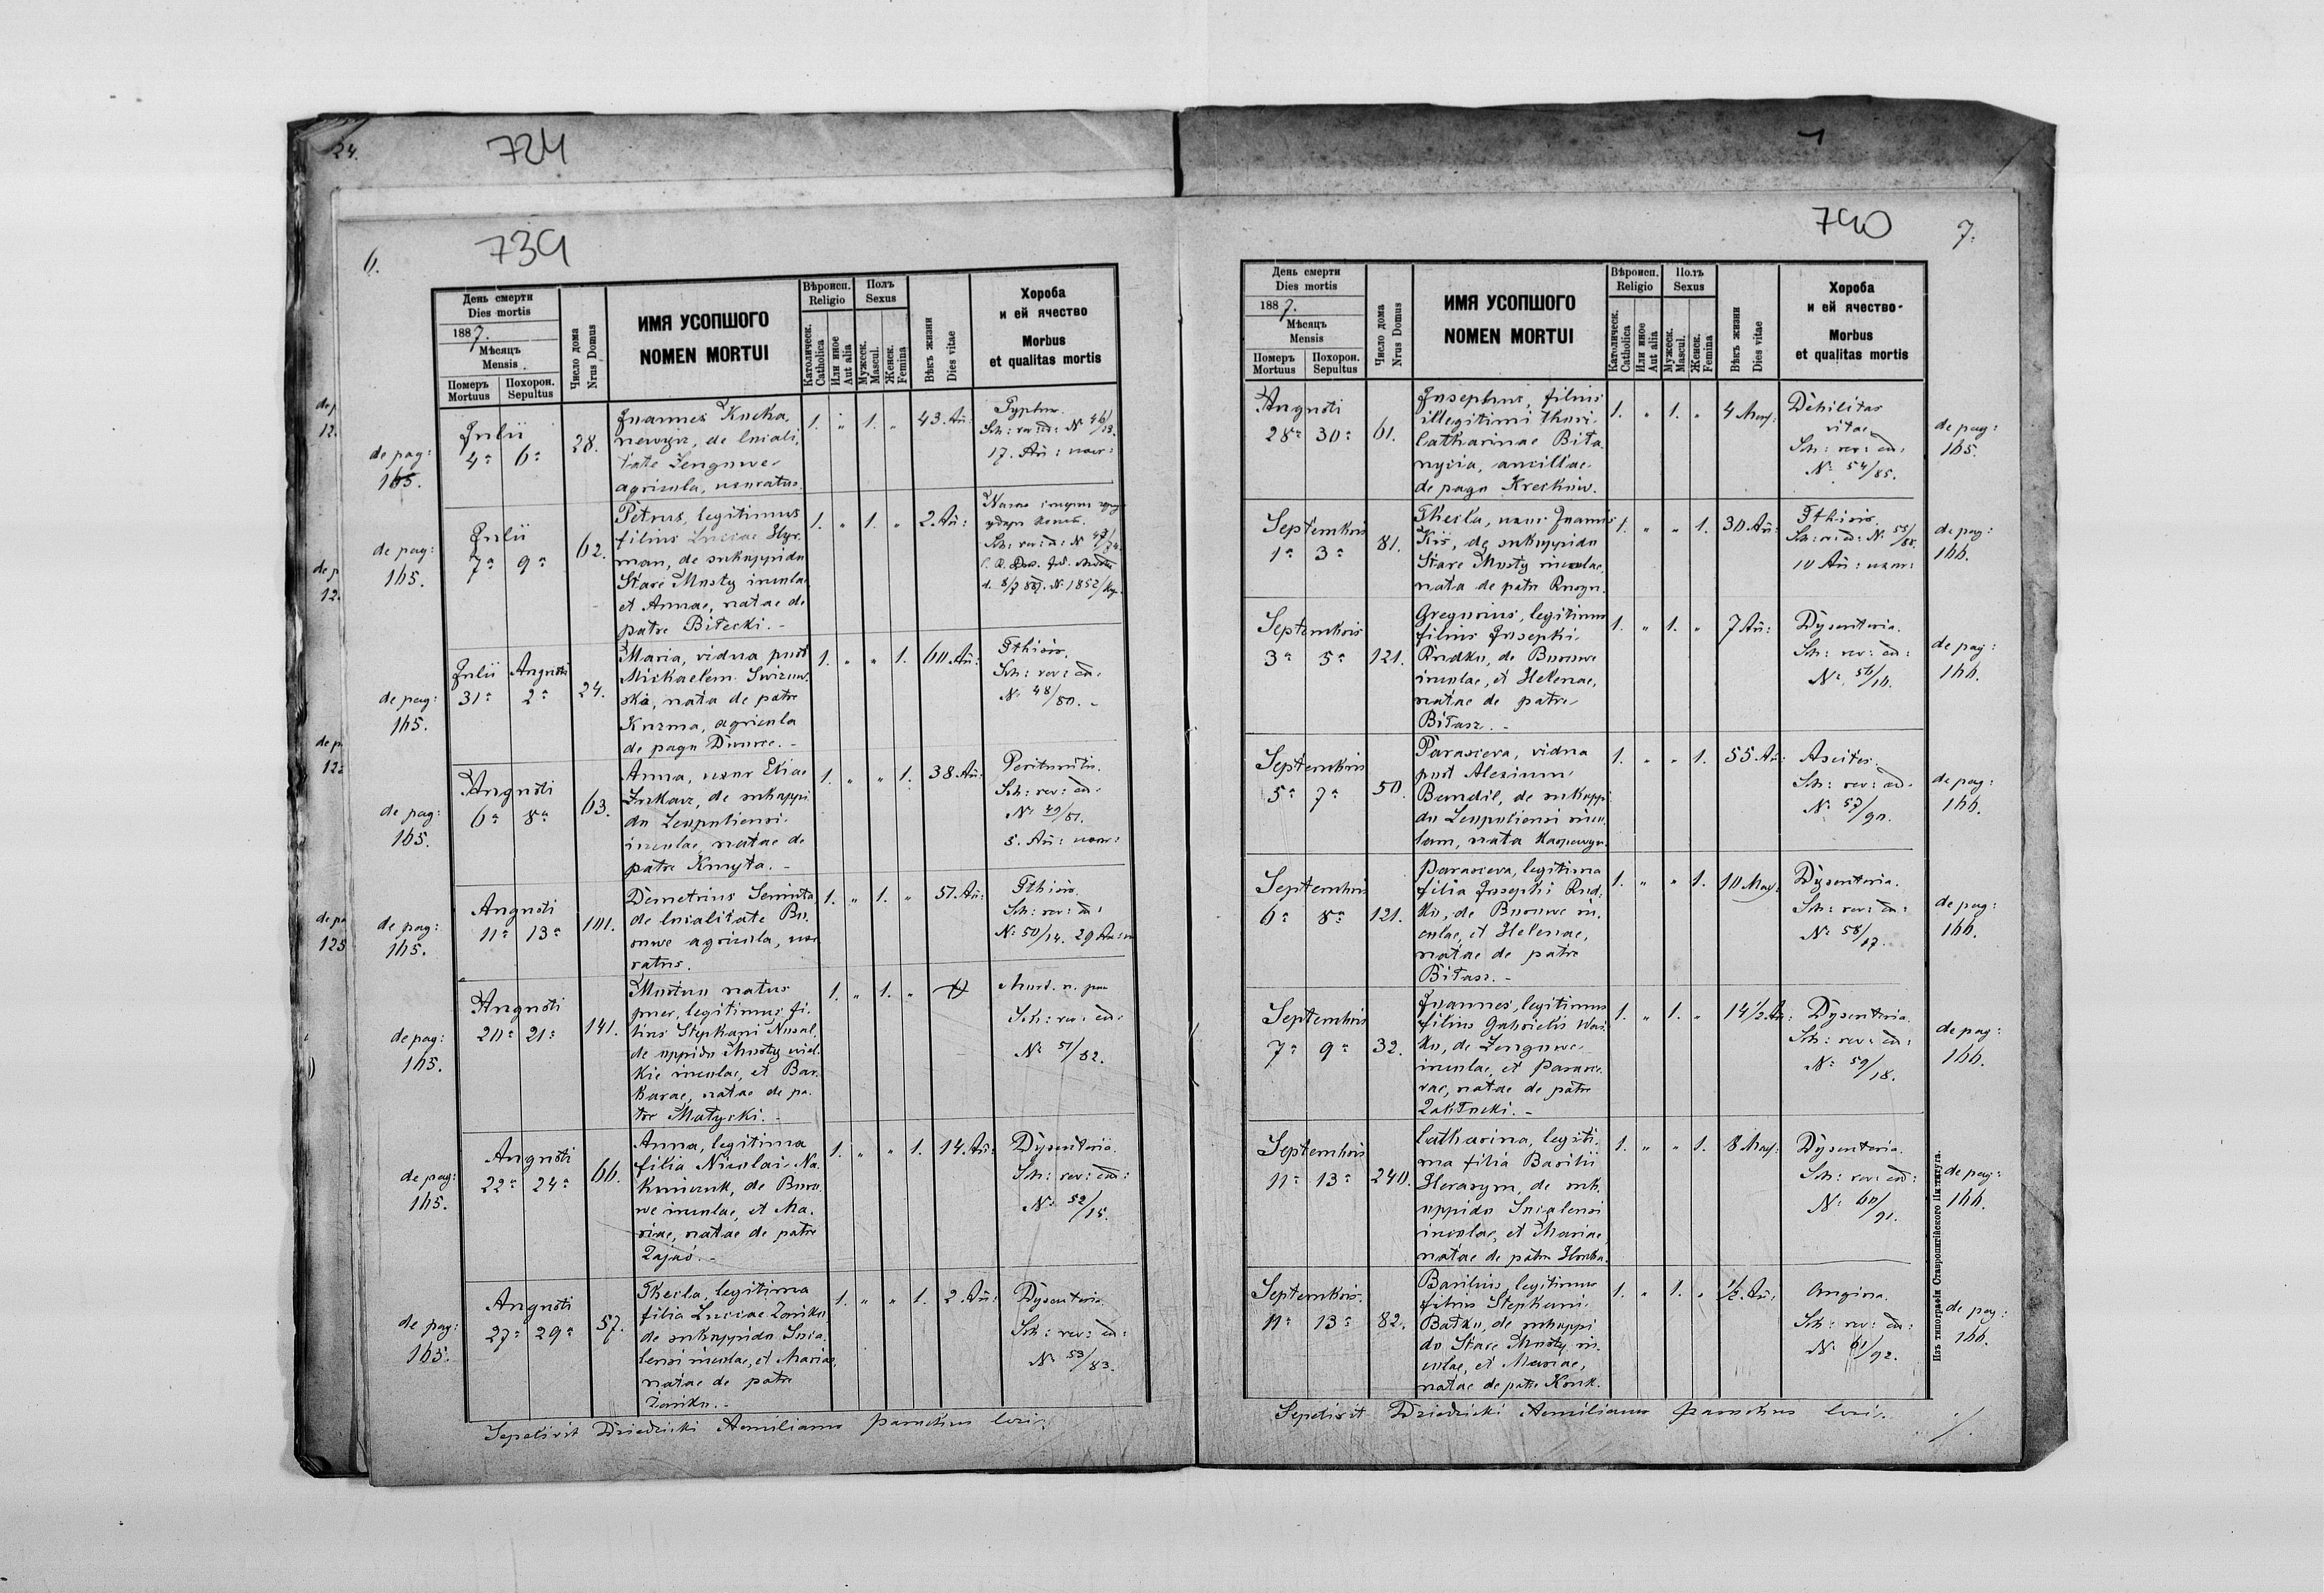 24.
724
6.
739
День смерти
Dies mortis
1887.
Мѣсяцъ
Mensis
Померъ
Mortuus
Похорон.
Sepultus
Число дома
Nrus Domus
ИМЯ УСОПШОГО
NOMEN MORTUI
Вѣроисп.
Religio
Католическ.
Catholica
Или иное
Aut alia
Полъ
Sexus
Мужеск.
Mascul.
Женск.
Femina
Вѣкъ жизни
Dies vitae
Хороба
и ей ячество
Morbus
et qualitas mortis
de pag:
165.
Julii
4ª 6ª
28.
Joannes
de locali
tate Zengowe
agricola, uxoratus.
1. " 1. "
43. An:
Typhus.
Sch: rev: ead: Nº 46/13.
17. An: uxor:
de pag:
165.
Julii
7ª 9ª
62.
Petrus, legitimus
filius Lucae Hyr
man, de suboppido
Stare Mosty incolae
et Annae, natae de
patre Bitecki. -
1. " 1. "
2. An:
Sch: rev: ead: Nº 47/
de pag:
165.
Julii Augusti
31ª 2ª
24.
Maria, vidua post
Michaelem
ska, nata de patre
Kuzma, agricola
de pago Dworce. -
1. " " 1.
60. An:
Fthisis.
Sch: rev: ead:
Nº 48/80. -
de pag:
165.
Augusti
6ª 8ª
63.
Anna, uxor Eliae
Zukasz, de suboppi
do Leopoliensi
incolae, natae de
patre Kmyta. -
1. " " 1.
38. An:
Peritonitis.
Sch: rev: ead:
Nº 49/81.
5. An: uxor:
de pag:
165.
Augusti
11ª 13ª
101.
Demetrius Seniuta,
de localitate Bo
rowe agricola, uxo
ratus.
1. " 1. "
51. An:
Fthisis.
Sch: rev: ead:
Nº 50/14. 29 An:
de pag:
165.
Augusti
20ª 21ª
141.
Mortuo natus
puer, legitimus fi
lius Stephani Nosal,
de oppido Mosty wiel
kie incolae, et Bar
barae, natae de pa
tre Matycki. -
1. " 1. "
Mort. n. puer
Sch: rev: ead:
Nº 51/82.
de pag:
165.
Augusti
22ª 24ª
66.
Anna, legitima
filia Nicolai Na
koniecznk, de Boro
we incolae, et Ma
riae, natae de patre
Zając. -
1. " " 1.
14. An:
Dysenteria.
Sch: rev: ead:
Nº 52/15.
de pag:
165.
Augusti
27ª 29ª
57.
Thecla, legitima
filia Lucae
de suboppido Soca
lensi incolae, et Mariae,
natae de patre
1. " " 1.
2. An:
Dysenteria.
Sch: rev: ead:
Nº 53/83.
Sepelivit Dziedzicki Aemilianus parochus loci.
740
7.
День смерти
Dies mortis
1887.
Мѣсяцъ
Mensis
Померъ
Mortuus
Похорон.
Sepultus
Число дома
Nrus Domus
ИМЯ УСОПШОГО
NOMEN MORTUI
Вѣроисп.
Religio
Католическ.
Catholica
Или иное
Aut alia
Полъ
Sexus
Мужеск.
Mascul.
Женск.
Femina
Вѣкъ жизни
Dies vitae
Хороба
и ей ячество-
Morbus
et qualitas mortis
Augusti
28ª 30ª
61.
Josephus, filius
illegitimi thori
Catharinae Bita
nycia, ancillae
de pago Krechów.
1. " 1. "
4 Mens:
Debilitas
vitae
Sch: rev: ead:
Nº 54/85.
de pag:
165.
Septembris
1ª 3ª
81.
Thecla, uxor Joannis
Kis, de suboppido
Stare Mosty incolae,
nata de patre
1. " " 1.
30. An:
Fthisis.
Sch: rev: ead: Nº 55/88.
10 An: uxor:
de pag:
166.
Septembris
3ª 5ª
121.
Gregorius, legitimus
filius Josephi
Rudko, de Borowe
incolae, et Helenae,
natae de patre
Bitasz. -
1. " 1. "
7 An:
Dysenteria.
Sch: rev: ead:
Nº 56/16.
de pag:
166.
Septembris
5ª 7ª
50.
Parasceva, vidua
post Alexium
Bandil, de suboppi
do Leopoliensi inco
lam, nata
1. " " 1.
55 An:
Ascites.
Sch: rev: ead:
Nº 57/90.
de pag:
166.
Septembris
6ª 8ª
121.
Parasceva, legitima
filia Josephi Rud
ko, de Borowe in
colae, et Helenae,
natae de patre
Bitasz. -
1. " " 1.
10 Mens:
Dysenteria.
Sch: rev: ead:
Nº 58/17.
de pag:
166.
Septembris
7ª 9ª
32.
Joannes, legitimus
filius Gabrielis Was
ko, de Zengowe
incolae, et Parasce
vae, natae de patre
Zaktocki. -
1. " 1. "
14 1/2. An:
Dysenteria.
Sch: rev: ead:
Nº 59/18.
de pag:
166.
Septembris
11ª 13ª
240.
Catharina, legiti
ma filia Basilii
Harasym, de sub
oppido Socalensi
incolae, et Mariae,
natae de patre
1. " " 1.
8 Mens:
Dysenteria.
Sch: rev: ead:
Nº 60/91.
de pag:
166.
Septembris.
11ª 13ª
82.
Basilius, legitimus
filius Stephani
Batko, de suboppi
do Stare Mosty in
colae, et Mariae,
natae de patre Kosik.
1. " 1. "
1/2. An:
Angina.
Sch: rev: ead:
Nº 61/92.
de pag:
166.
Изъ типографіи Ставропигійского Института.
Sepelivit Dziedzicki Aemilianus parochus loci.